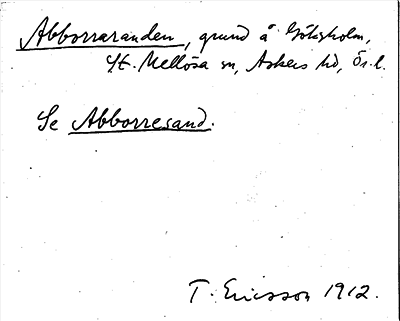 Abborraranden, grund å Göksholm,
St. Mellösa sn, Askers hd, Ör. l.
Se Abborresand.
T. Ericsson 1912.